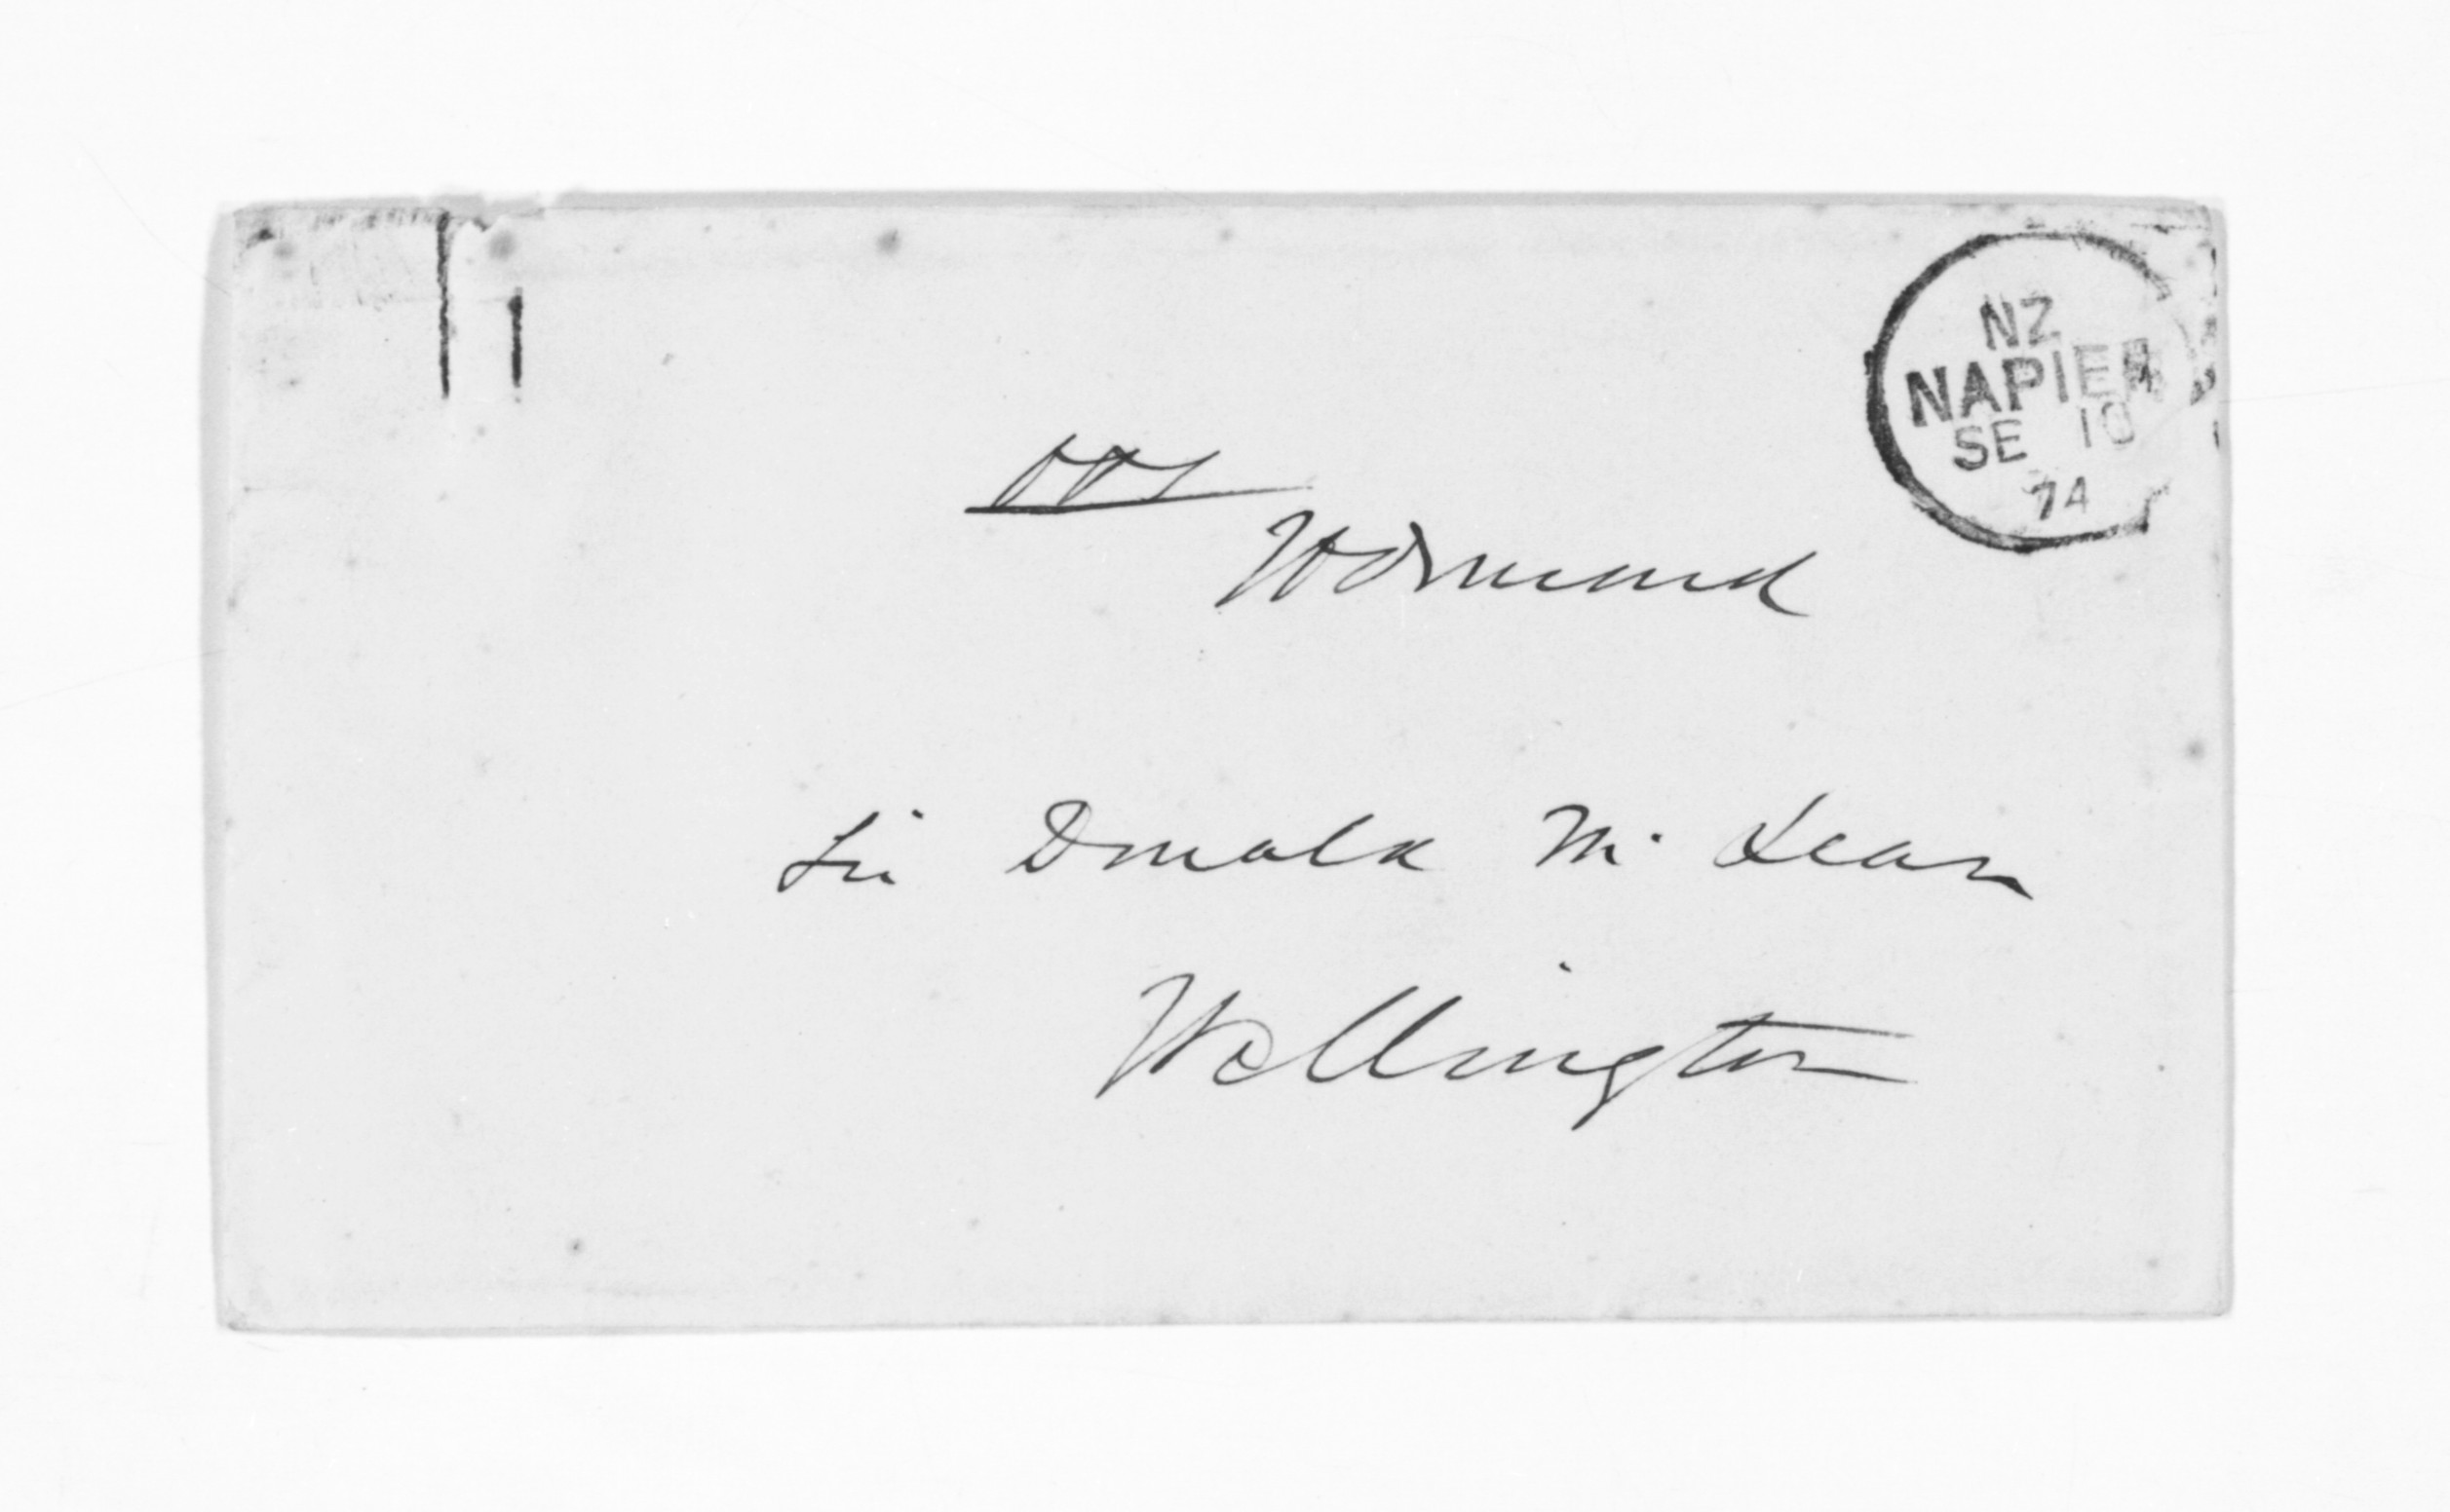 NZ
NAPIER
SE 10
74
OHS
JD Ormond
Sir Donald Mc Lean
Wellington